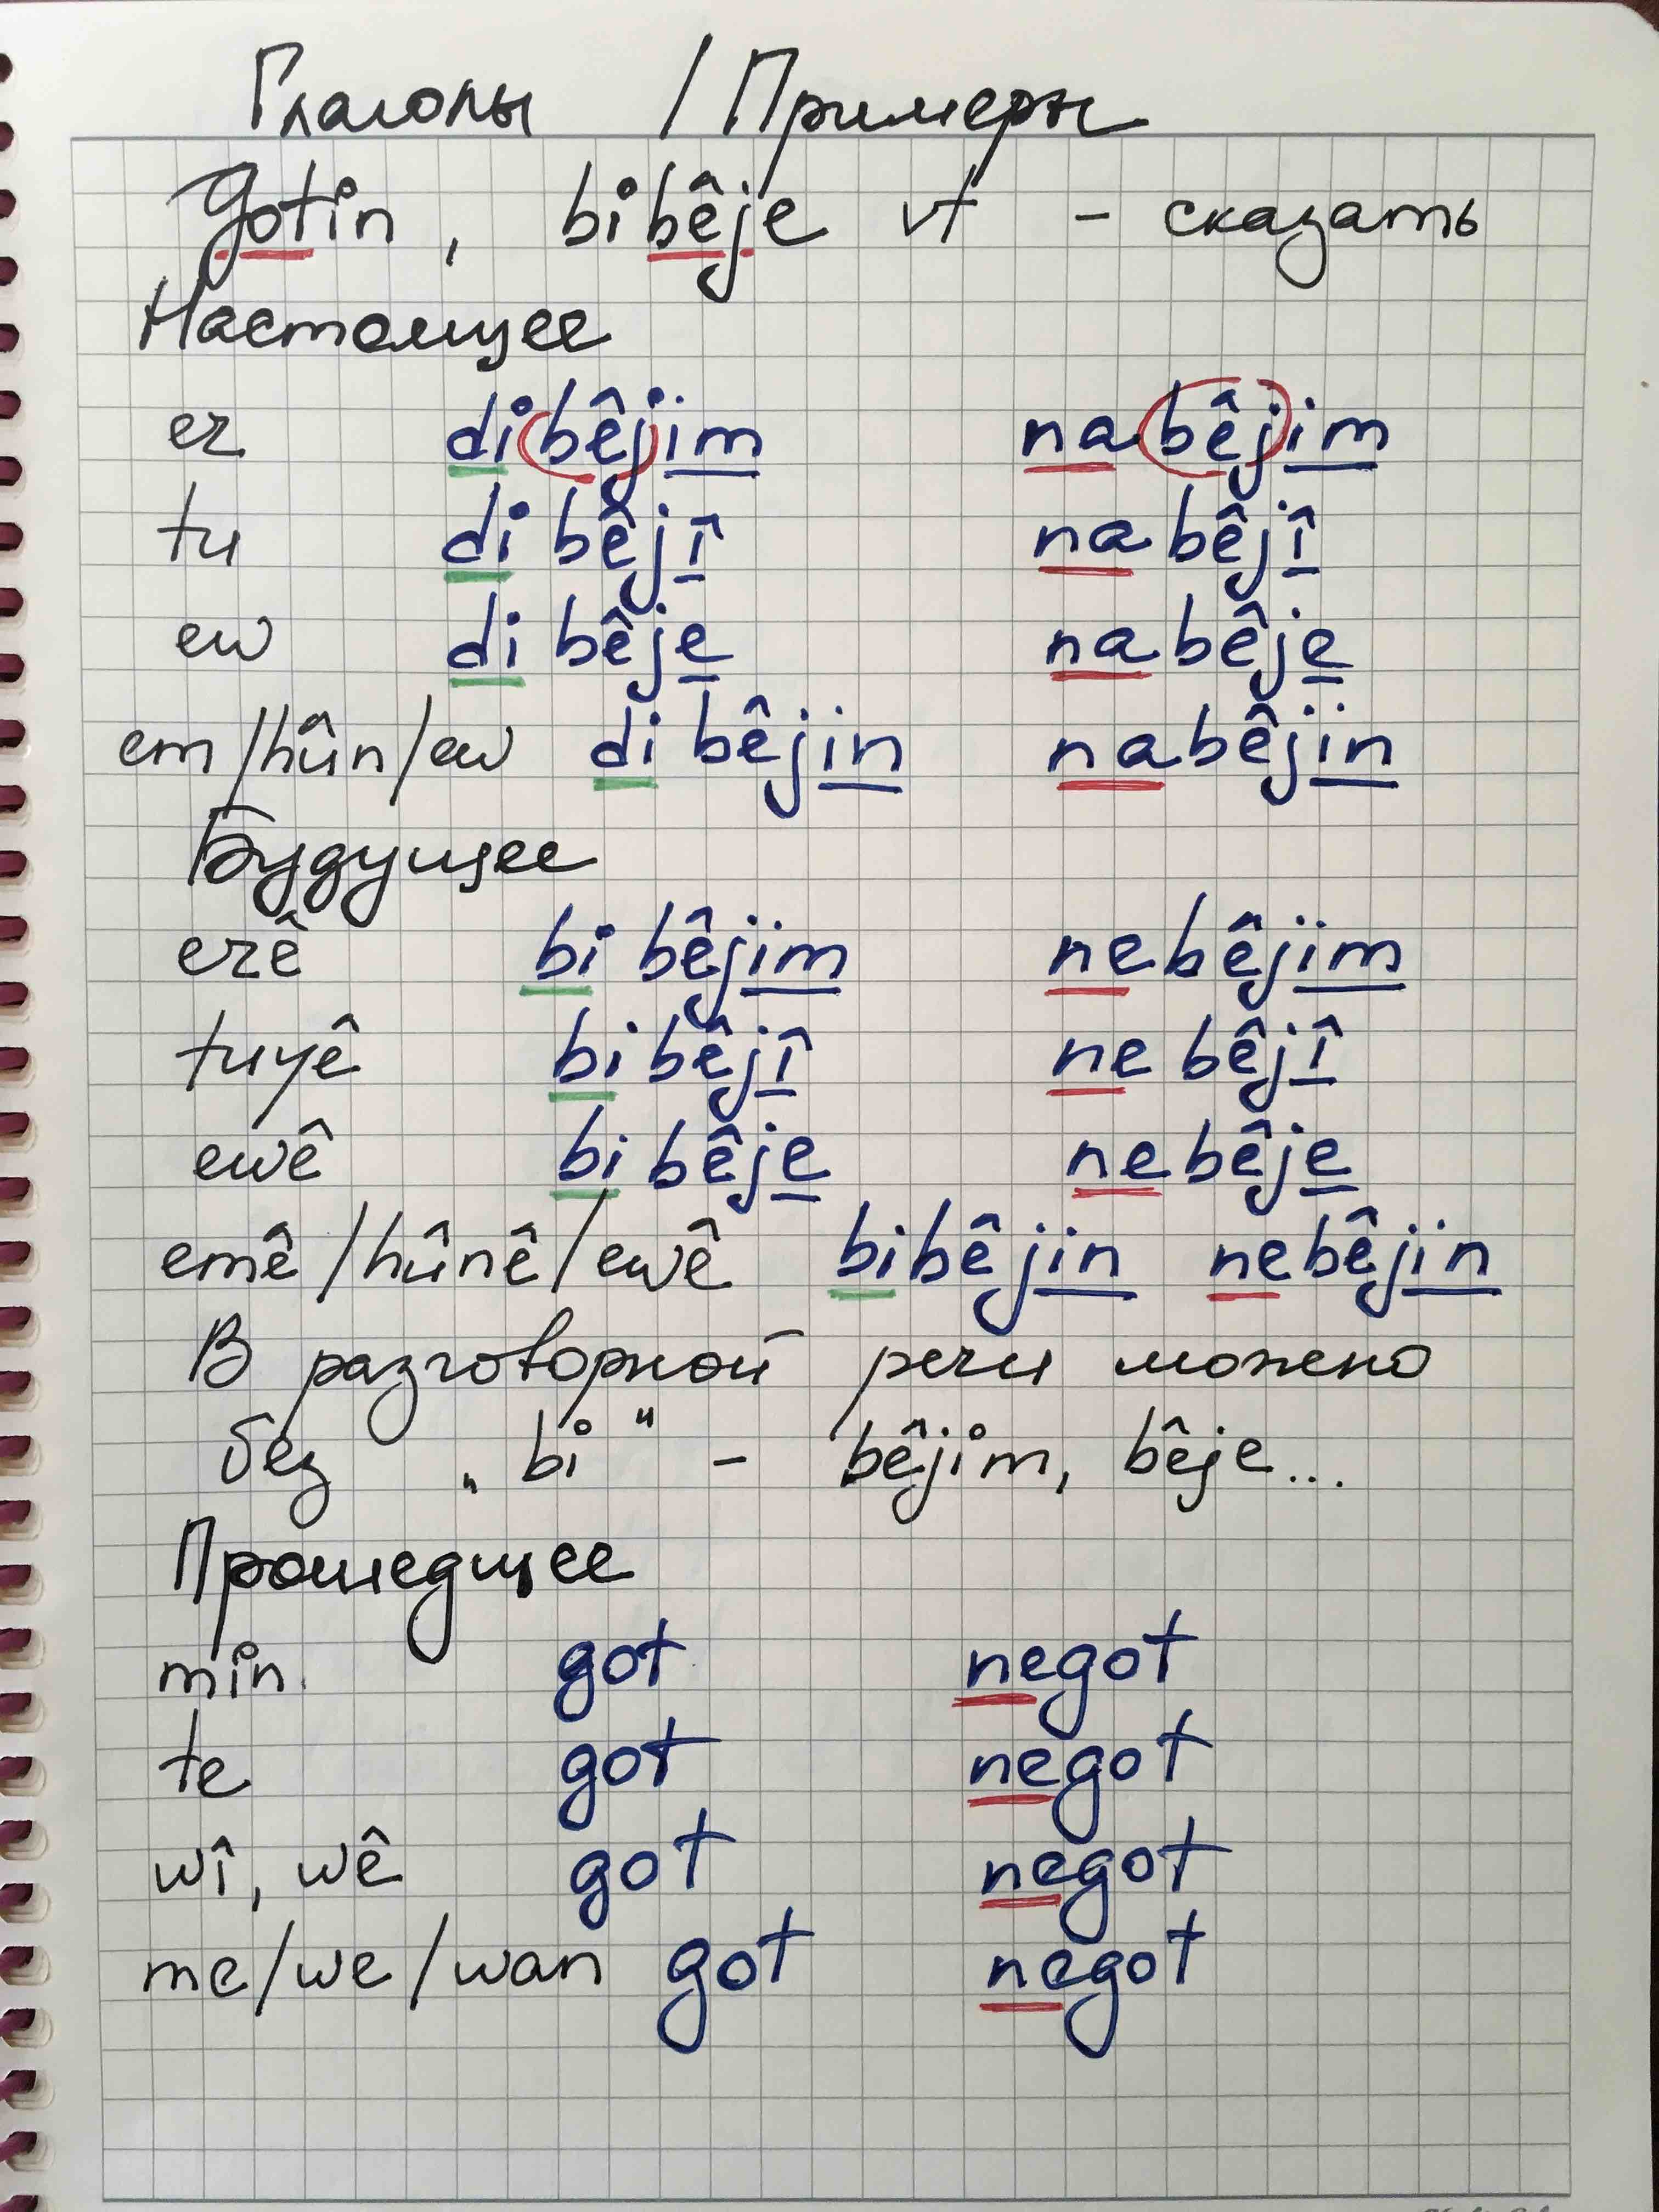 Глаголы / Примеры
gotin, bibêje vt - сказать
Настоящее
ez dibêjim nabêjim
tu dibêjî nabêjî
ew dibêje nabêje
em/hûn/ew dibêjin nabêjin
Будущее
ezê bibêjim nebêjim
tuyê bibêjî nebêjî
ewê bibêje nebêje
emê/hûnê/ewê bibêjin nebêjin
В разговорной речи можно
без „bi" - bêjim, bêje...
Прошедшее
min got negot
te got negot
wî, wê got negot
me/we/wan got negot